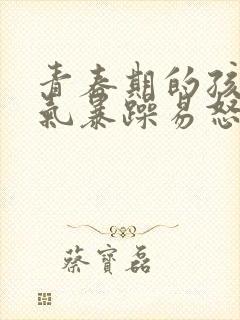 青春期的孩
氣暴躁易怒
蔡寶磊